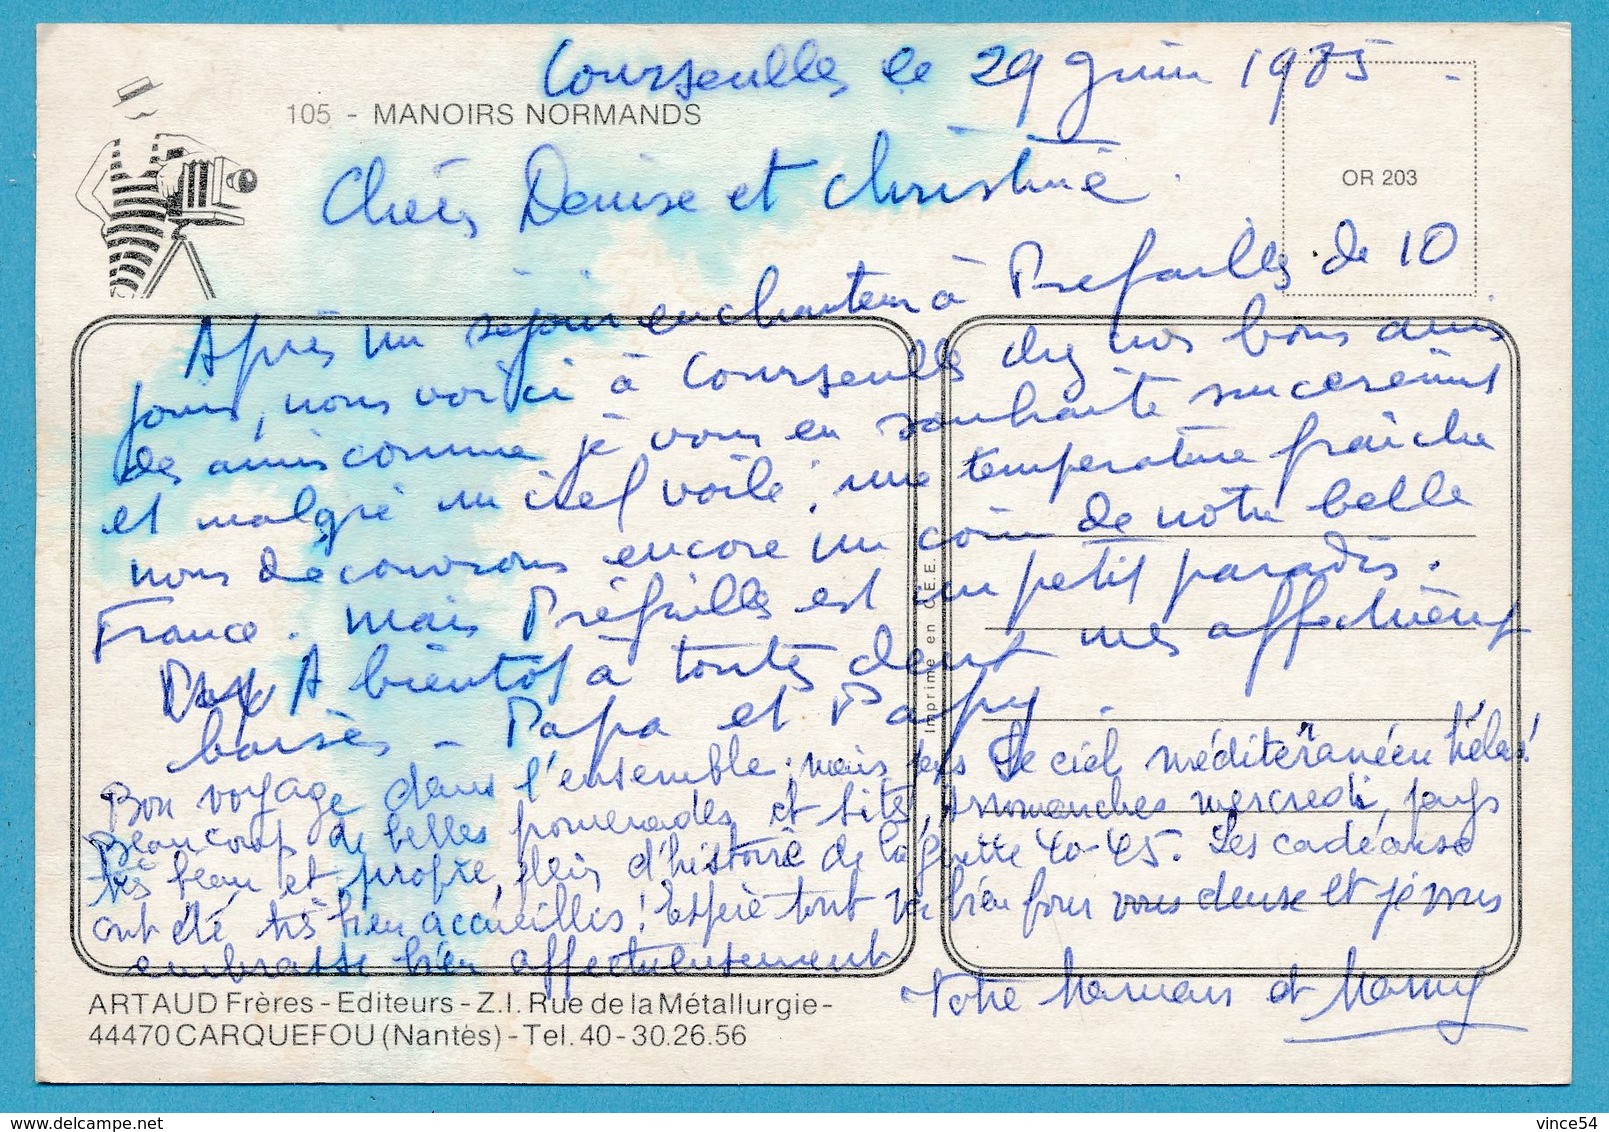 Courseulles le 29 Juin 1985
105 - MANOIRS NORMANDS
OR 203
Chères Denise et Christine
Après un séjour enchanteur à Prefailles de 10
jours, nous voici à Courseulles chez nos bons amis
de amis comme je vous en souhaite sincerement
et malgré un ciel voilé, une temperature fraîche
nous découvrons encore un coin de notre belle
France. Mais Préfailles est un petit paradis.
A bientôt à toutes deux mes affectueux
baisers - Papa et Papy
Bon voyage dans l'ensemble, mais pas le ciel méditerranéen hélas!
Beaucoup de belles promenades et sites, Arromanches mercredi, pays
très beau et propre, plein d'histoire de la guerre 40-45. Les cadeaux
ont été très bien accueillis! Espère tout va bien pour vous deux et je vous
embrasse bien affectueusement
Votre Maman et Mamy
Imprimé en C.E.E.
ARTAUD Frères - Editeurs - Z.I. Rue de la Métallurgie -
44470 CARQUEFOU (Nantes) - Tel. 40-30.26.56
vince54